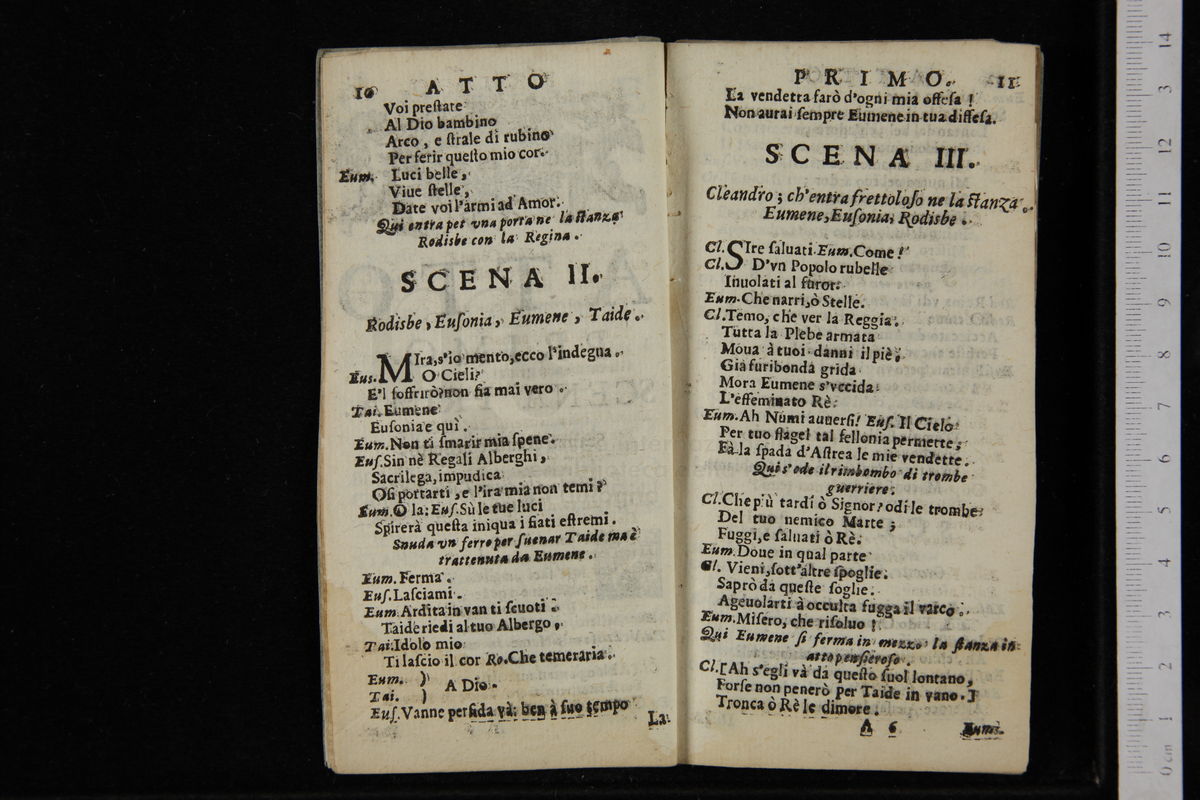 10 ATTO
Voi prestate
Al Dio bambino
Arco, e strale di rubino
Per ferir questo mio cor.
Eum. Luci belle,
Viue stelle,
Date voi l'armi ad Amor.
Qui entra per vna porta ne la stanza
Rodisbe con la Regina.
SCENA II.
Rodisbe, Eusonia, Eumene, Taide.
MIra, s'io mento, ecco l'indegna.
Eus. O Cieli?
E'l soffrirò? non fia mai vero.
Tai. Eumene
Eusonia e quì.
Eum. Non ti smarir mia spene.
Eus. Sin nè Regali Alberghi,
Sacrilega, impudica
Osi portarti, e l'ira mia non temi?
Eum. O la; Eus. Sù le tue luci
Spirerà questa iniqua i fiati estremi.
Snuda vn ferro per suenar Taide ma è
trattenuta da Eumene.
Eum. Ferma.
Eus. Lasciami.
Eum. Ardita in van ti scuoti.
Taide riedi al tuo Albergo,
Tai. Idolo mio
Ti lascio il cor Ro. Che temeraria.
Eum. )
Tai. ) A Dio.
Eus. Vanne perfida và: ben à suo tempo
La
PRIMO. 11
La vendetta farò d'ogni mia offesa!
Non aurai sempre Eumene in tua diffesa.
SCENA III.
Cleandro; ch'entra frettoloso ne la stanza.
Eumene, Eusonia, Rodisbe.
Cl. SIre saluati. Eum. Come!
Cl. D'vn Popolo rubelle
Inuolati al furor.
Eum. Che narri, ò Stelle.
Cl. Temo, che ver la Reggia.
Tutta la Plebe armata
Moua à tuoi danni il piè,
Già furibonda grida
Mora Eumene s'vccida
L'effeminato Rè.
Eum. Ah Numi auuersi! Eus. Il Cielo
Per tuo flagel tal fellonia permette,
Fà la spada d'Astrea le mie vendette.
Qui s'ode il rimbombo di trombe
guerriere.
Cl. Che più tardi ò Signor? odi le trombe
Del tuo nemico Marte;
Fuggi, e saluati ò Rè.
Eum. Doue in qual parte
Cl. Vieni, sott'altre spoglie.
Saprò da queste soglie.
Ageuolarti à occulta fugga il varco.
Eum. Misero, che risoluo!
Qui Eumene si ferma in mezzo la stanza in
atto pensieroso.
Cl. [Ah s'egli và da questo suol lontano,
Forse non penerò per Taide in vano.]
Tronca ò Rè le dimore.
A 6 Eum.